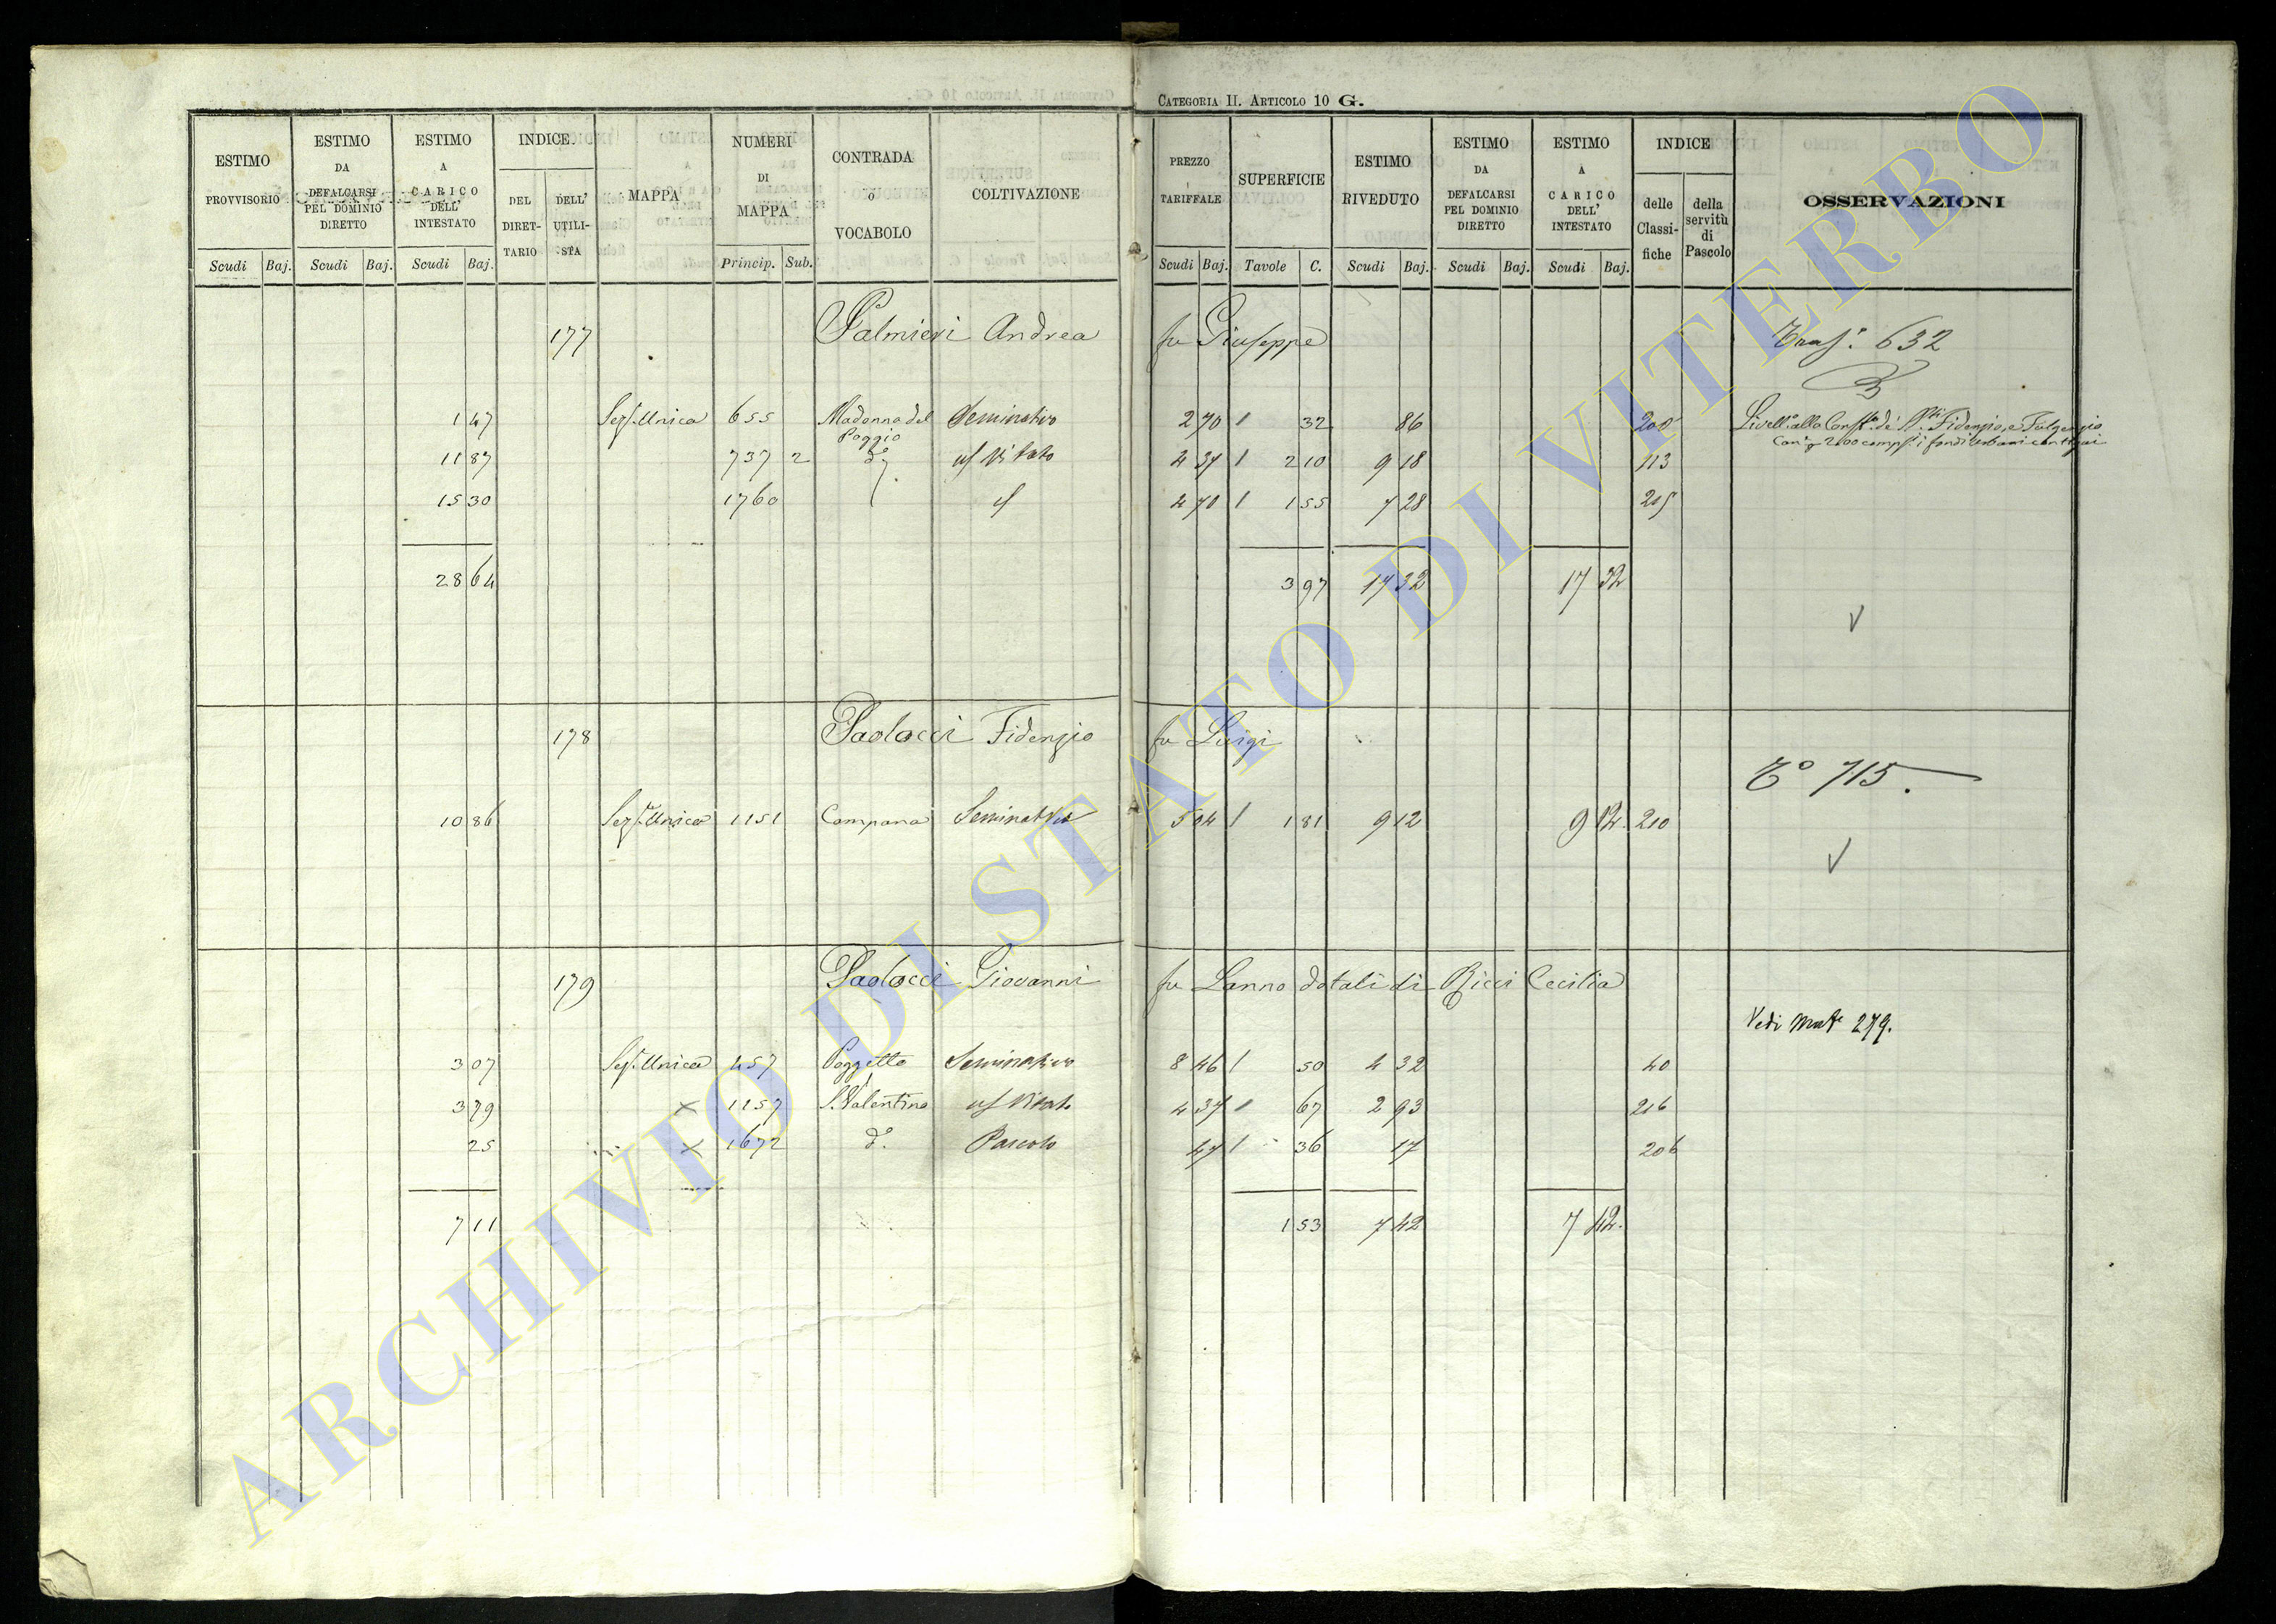 CATEGORIA II. ARTICOLO 10 G.
ESTIMO PROVVISORIO Scudi Baj.
ESTIMO DA DEFALCARSI PEL DOMINIO DIRETTO Scudi Baj.
ESTIMO A CARICO DELL' INTESTATO Scudi Baj.
INDICE DEL DIRETTARIO DELL' UTILISTA
MAPPA
NUMERI DI MAPPA Princip. Sub.
CONTRADA o VOCABOLO
COLTIVAZIONE
PREZZO TARIFFALE Scudi Baj.
SUPERFICIE Tavole C.
ESTIMO RIVEDUTO Scudi Baj.
ESTIMO DA DEFALCARSI PEL DOMINIO DIRETTO Scudi Baj.
ESTIMO A CARICO DELL' INTESTATO Scudi Baj.
INDICE delle Classifiche della servitù di Pascolo
OSSERVAZIONI
177 Palmieri Andrea fu Giuseppe Trasf. 632
1 47 Sez. Unica 655 Madonna del Poggio Seminativo 2 70 1 32 86 208 Livell. alla Conf. di SS.ti Fidenzio, e Terenzio
11 87 737 2 do. Vitato 4 37 1 2 10 9 18 113
15 30 1760 4 70 1 1 55 7 28 215
28 64 3 97 17 32 17 32
178 Paolocci Fidenzio fu Luigi
To 715.
10 86 Sez. Unica 1151 Campana Seminativo 5 04 1 1 81 9 12 9 12 210
179 Paolocci Giovanni fu Lanno dotali di Ricci Cecilia
Vedi Mate 279.
3 07 Sez. Unica 457 Poggetto Seminativo 8 46 1 50 4 32 40
3 79 x 1157 S. Valentino Vitato 4 37 1 67 2 93 216
25 x 1672 do. Pascolo 47 1 36 17 206
7 11 1 53 7 42 7 42
ARCHIVIO DI STATO DI VITERBO